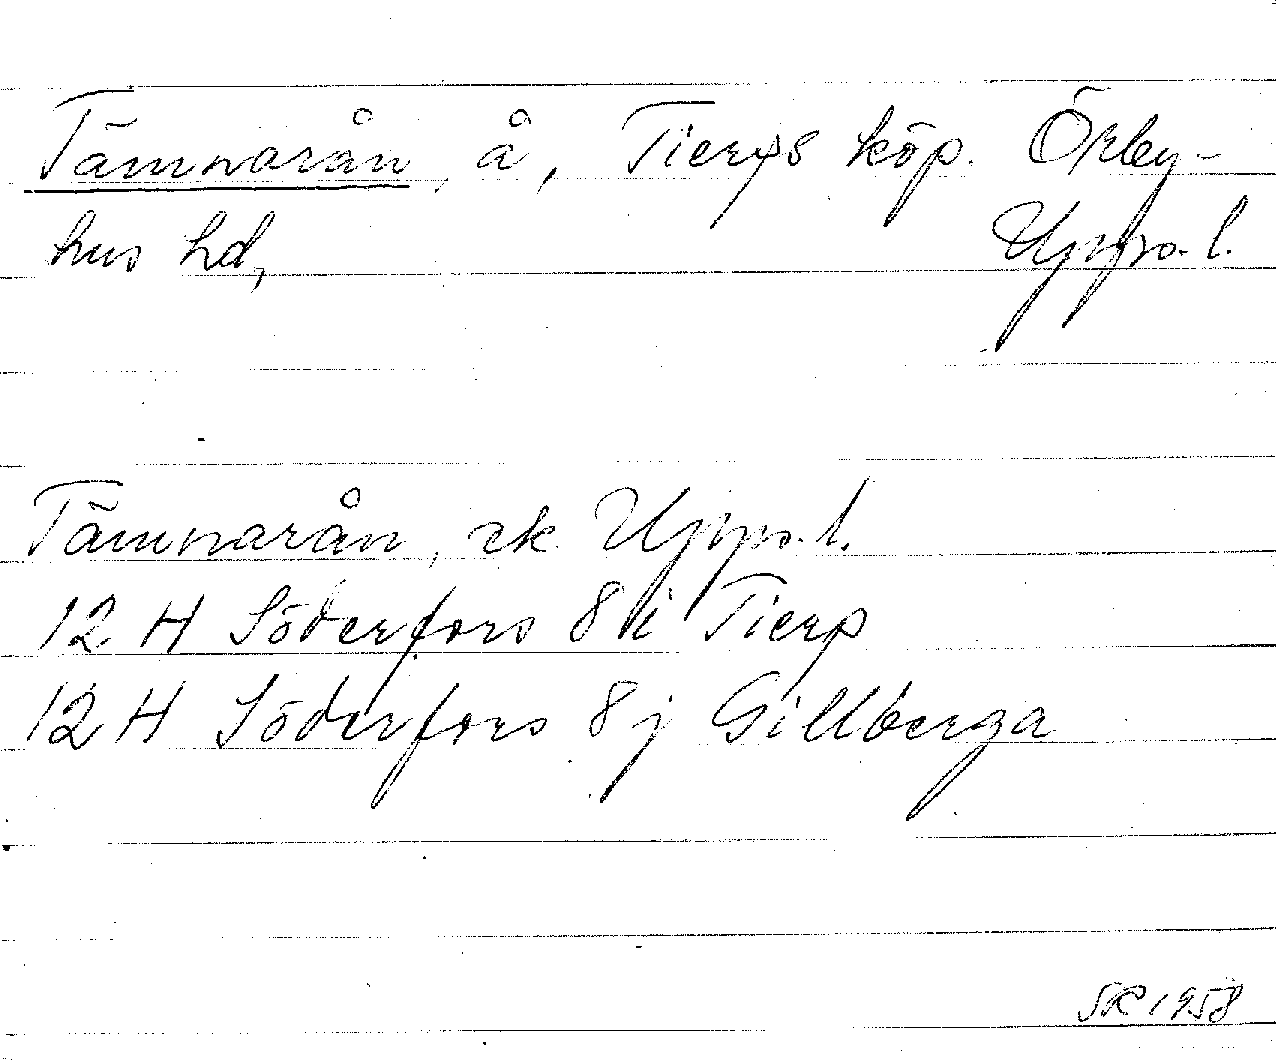 Tämnarån, å, Tierps köp. Örby-
hus hd, Upps. l.
Tämnarån, ek Upps. l.
12 H Söderfors 8 i Tierp
12 H Söderfors 8 j Gillberga
SR 1958